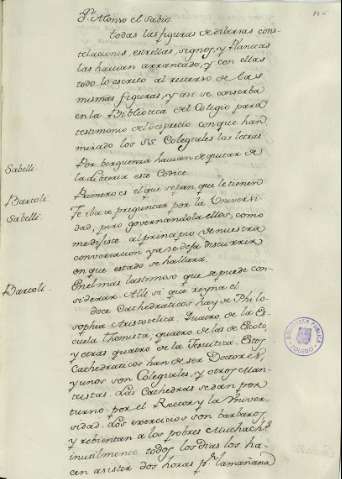 Dn. Alonso el Sabio.
todas las figuras de diversas cons-
telaciones, estrellas, signos, y Planetas
las havian arrancado, y con ellas
todo lo escrito al reverso de las
mismas figuras, y asi se conserba
en la Biblioteca del Colegio para
testimonio del desprecio con que han
mirado los SS. Colegiales las letras
Sabelli. Por berguenza havian de quitar de
la Libreria este Codice.
Barcoli. Primero es el que sepan que le tienen
Sabelli. Te iba a preguntar por la Universi-
dad, pero governandola ellos, como
me dijiste al principio de nuestra
conversacion ya se deja discurrir
en que estado se hallara.
Barcoli. En el mas lastimoso que se puede con-
siderar. Alli si que reyna el
doce Cathedraticos hay de Philo-
sophia Aristotelica. Quatro de la Es-
cuela Thomista, quatro de la de Escoto,
y otras quatro de la Jesuitica. Estos
Cathedraticos han de ser Doctores,
y unos son Colegiales, y otros Man-
teistas. Las Cathedras se dan por
turno por el Rector y la Univer-
sidad. Los exercicios son barbaros
y rebientan a los pobres Muchachos
inutilmente todos los dias los ha-
cen asistir dos horas pr. la mañana
BIBLIOTECA PUBLICA
TOLEDO